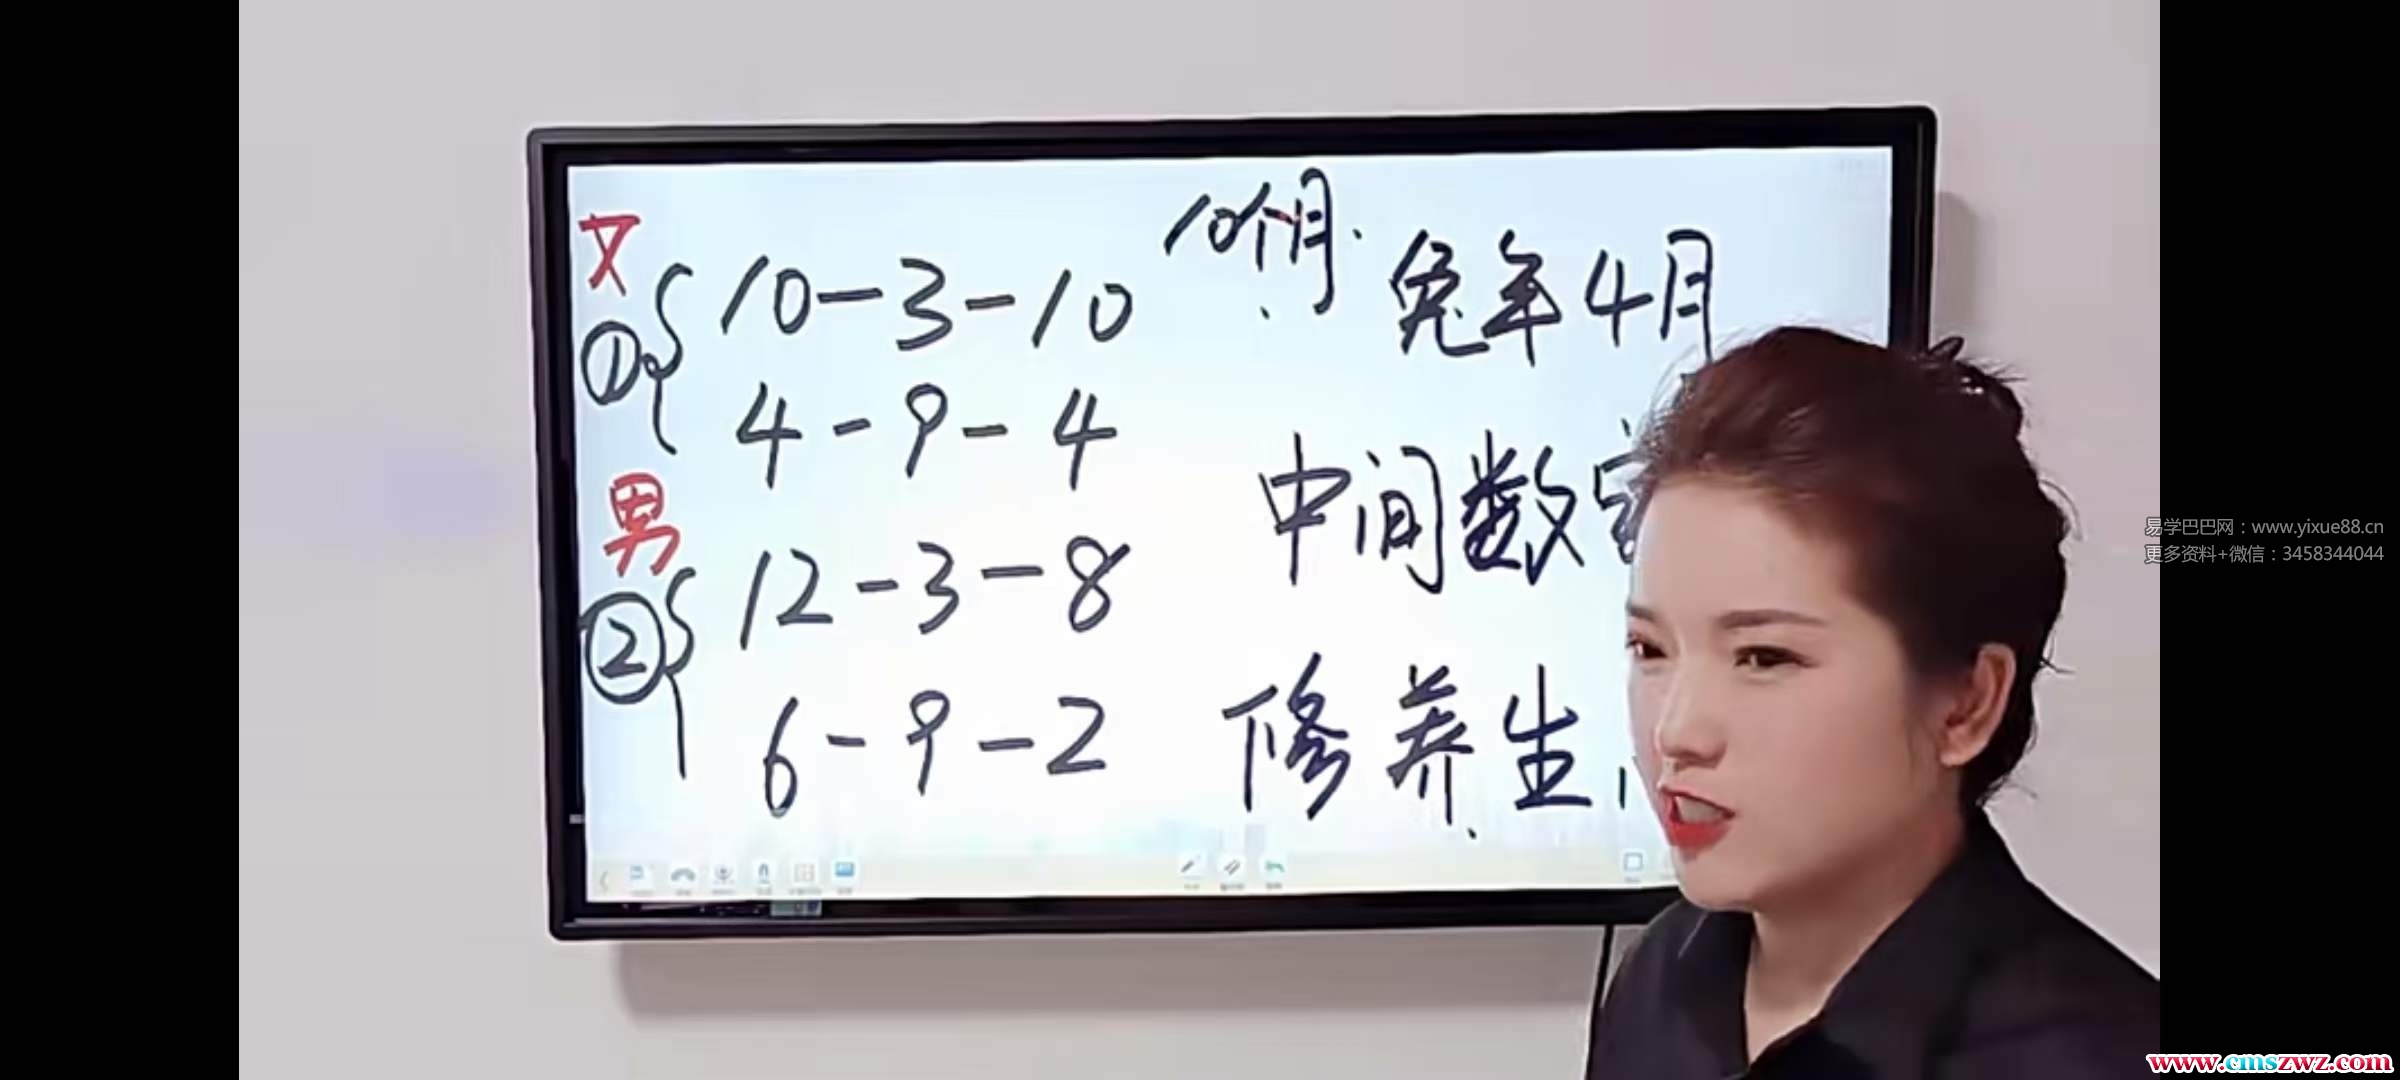 10个月.
女
10-3-10
兔年4月
①
4-9-4
中间数字
男
12-3-8
②
6-9-2
修养生
易学巴巴网：www.yixue88.cn
更多资料+微信：3458344044
www.cmszwz.com